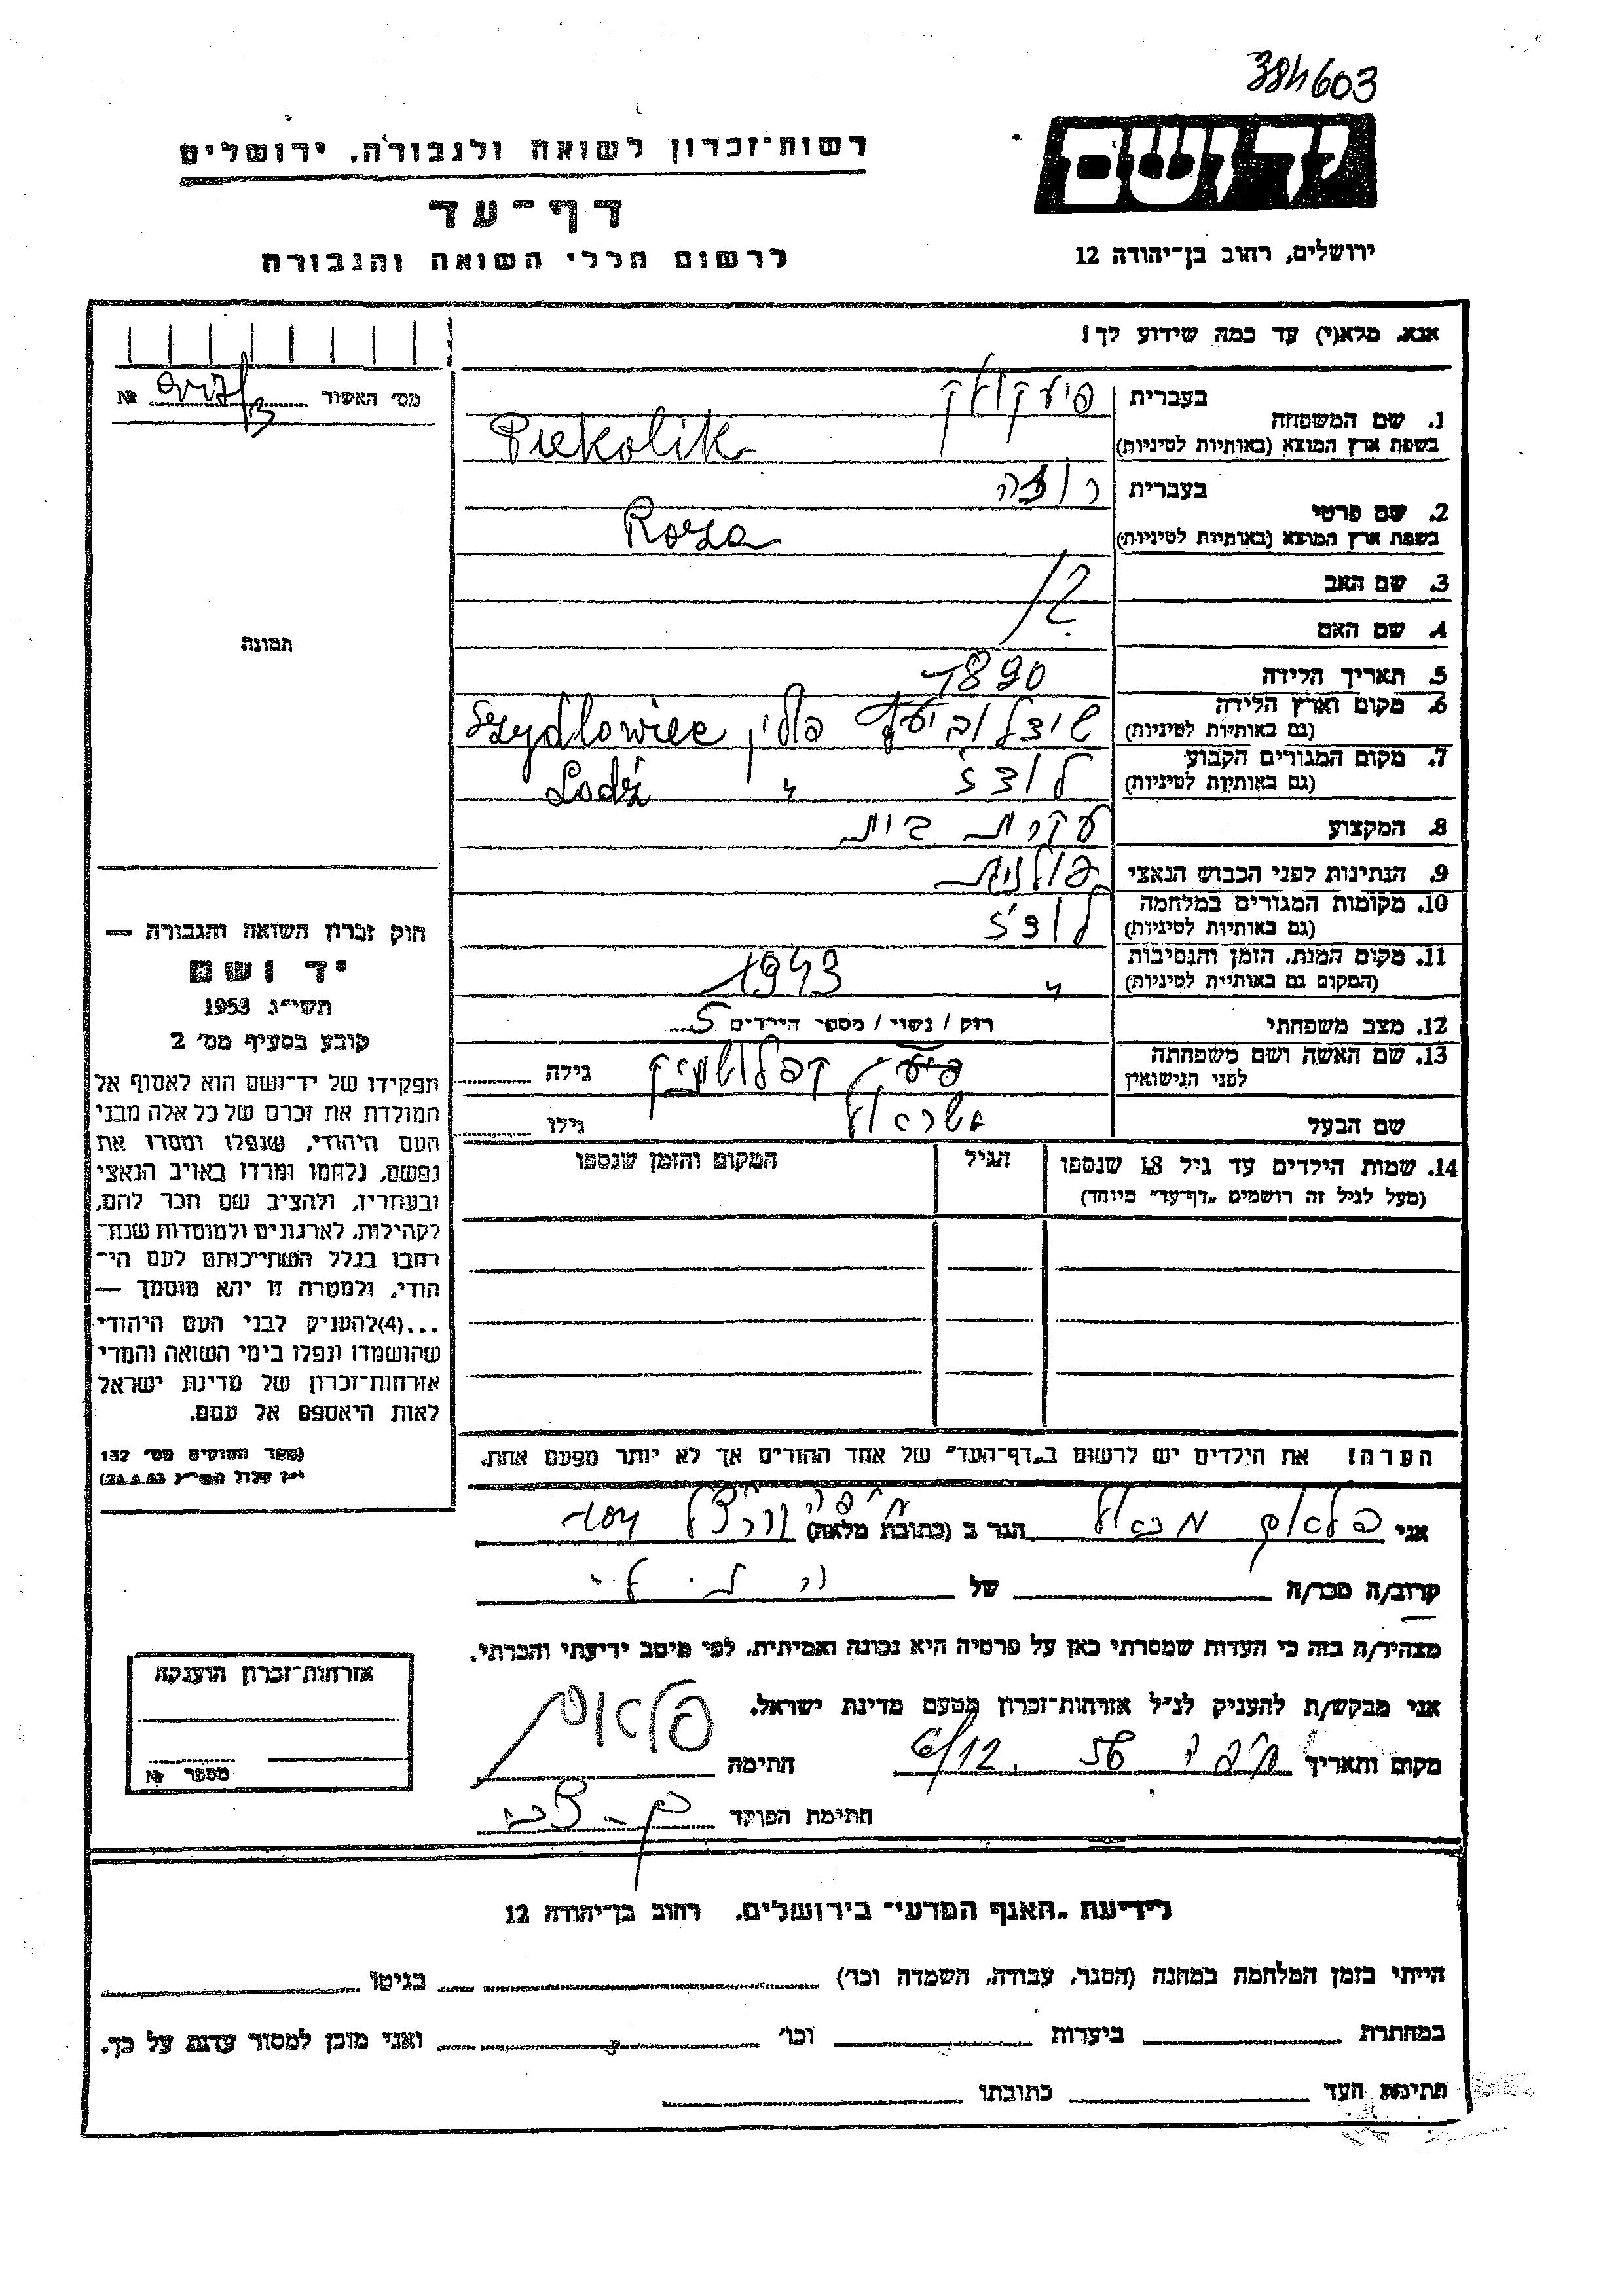 384603
רשות־זכרון לשואה ולגבורה. ירושלים
יד ושם
דף־עד
לרשום חללי השואה והגבורה
ירושלים, רחוב בן־יהודה 12
אנא. מלא(י) עד כמה שידוע לך!
מס׳ האשור №
1. שם המשפחה
בעברית פיעקוליק
בשפת ארץ המוצא (באותיות לטיניות) Piekolik
2. שם פרטי
בעברית רוזה
בשפת ארץ המוצא (באותיות לטיניות) Roza
3. שם האב
?
4. שם האם
5. תאריך הלידה 1890
6. מקום וארץ הלידה
(גם באותיות לטיניות) פולין Szydlowiec
7. מקום המגורים הקבוע
(גם באותיות לטיניות) לודז׳ " Lodź
8. המקצוע עקרת בית
9. הנתינות לפני הכבוש הנאצי פולנית
10. מקומות המגורים במלחמה
(גם באותיות לטיניות) לודז׳
11. מקום המות. הזמן והנסיבות
(המקום גם באותיות לטיניות) " 1943
12. מצב משפחתי רוק / נשוי / מספר הילדים 5
13. שם האשה ושם משפחתה
לפני הנישואין גילה
שם הבעל גילו
14. שמות הילדים עד גיל 18 שנספו
(מעל לגיל זה רושמים „דף־עד״ מיוחד)
הגיל
המקום והזמן שנספו
הערה! את הילדים יש לרשום ב„דף־העד״ של אחד ההורים אך לא יותר מפעם אחת.
תמונה
חוק זכרון השואה והגבורה —
יד ושם
תשי״ג 1953
קובע בסעיף מס׳ 2
תפקידו של יד־ושם הוא לאסוף אל
המולדת את זכרם של כל אלה מבני
העם היהודי, שנפלו ומסרו את
נפשם, נלחמו ומרדו באויב הנאצי
ובעוזריו, ולהציב שם וזכר להם,
לקהילות, לארגונים ולמוסדות שנח־
רבו בגלל השתייכותם לעם הי־
הודי, ולמטרה זו יהא מוסמך —
...(4)להעניק לבני העם היהודי
שהושמדו ונפלו בימי השואה והמרי
אזרחות־זכרון של מדינת ישראל
לאות היאספם אל עמם.
(ספר החוקים מס׳ 132
אני הגר ב (כתובת מלאה) חיפה
קרוב/ה מכר/ה של
מצהיר/ה בזה כי העדות שמסרתי כאן על פרטיה היא נכונה ואמיתית. לפי מיטב ידיעתי והכרתי.
אני מבקש/ת להעניק לנ״ל אזרחות־זכרון מטעם מדינת ישראל.
מקום ותאריך חיפה 6/12. 56 חתימה
חתימת הפוקד
אזרחות־זכרון הוענקה
מספר №
לידיעת „האגף המדעי״ בירושלים. רחוב בן־יהודה 12
הייתי בזמן המלחמה במחנה (הסגר, עבודה, השמדה וכו׳) בגיטו
במחתרת ביערות וכו׳ ואני מוכן למסור עדות על כך.
חתימת העד כתובתו